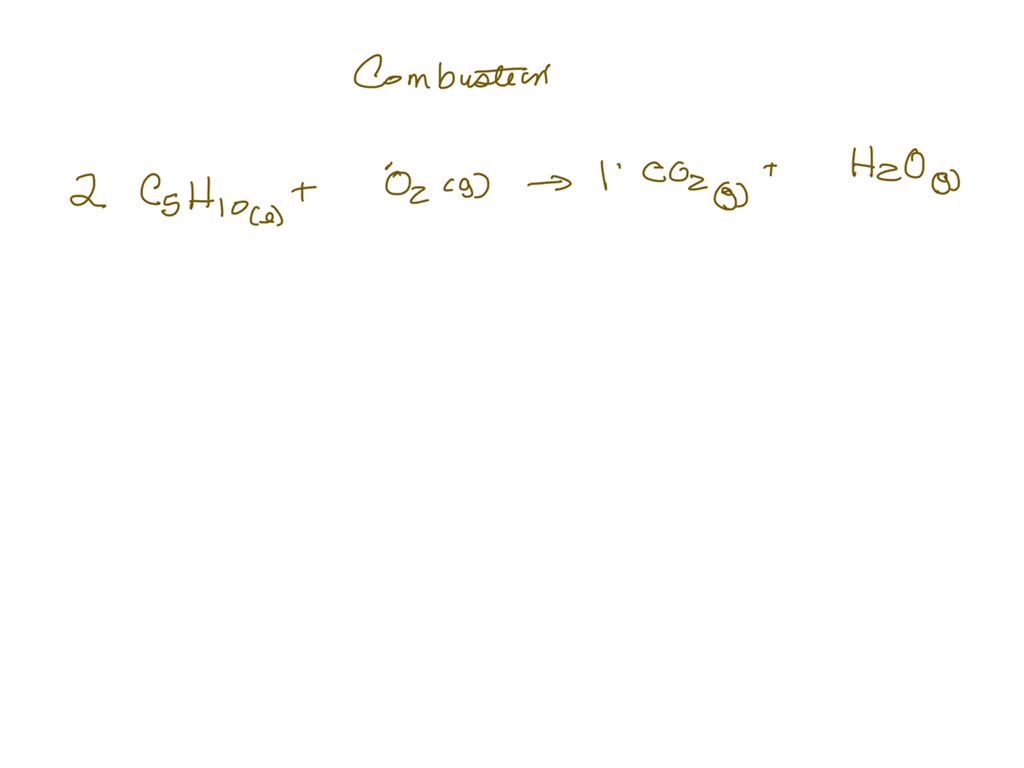 Combustion
2 C5H10(l) + O2 (g) → 1 CO2 (g) + H2O (g)